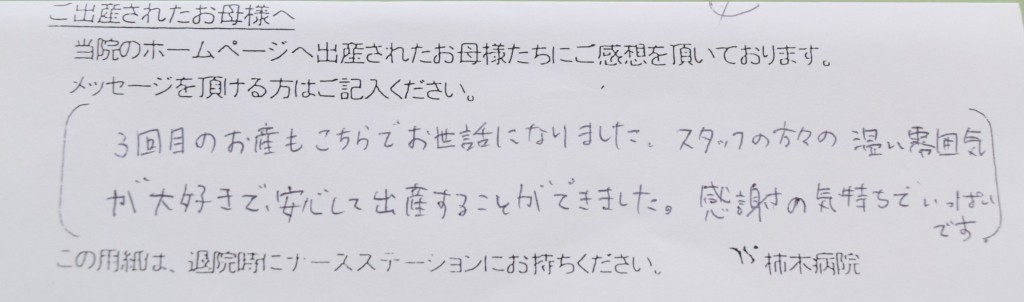 ご出産されたお母様へ
当院のホームページへ出産されたお母様たちにご感想を頂いております。
メッセージを頂ける方はご記入ください。
3回目のお産もこちらでお世話になりました。スタッフの方々の温い雰囲気
が大好きで、安心して出産することができました。感謝の気持ちでいっぱい
です。
この用紙は、退院時にナースステーションにお持ちください。 柿木病院